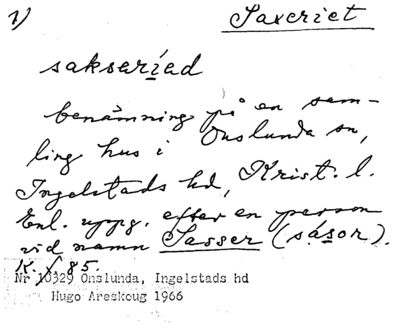 1) Saxeriet
sakseriad
benämning på en sam-
ling hus i Onslunda sn,
Ingelstads hd, Krist. l.
Enl. uppg. efter en person
vid namn Sasser (sásor).
K. 85.
Nr 10329 Onslunda, Ingelstads hd
Hugo Areskoug 1966